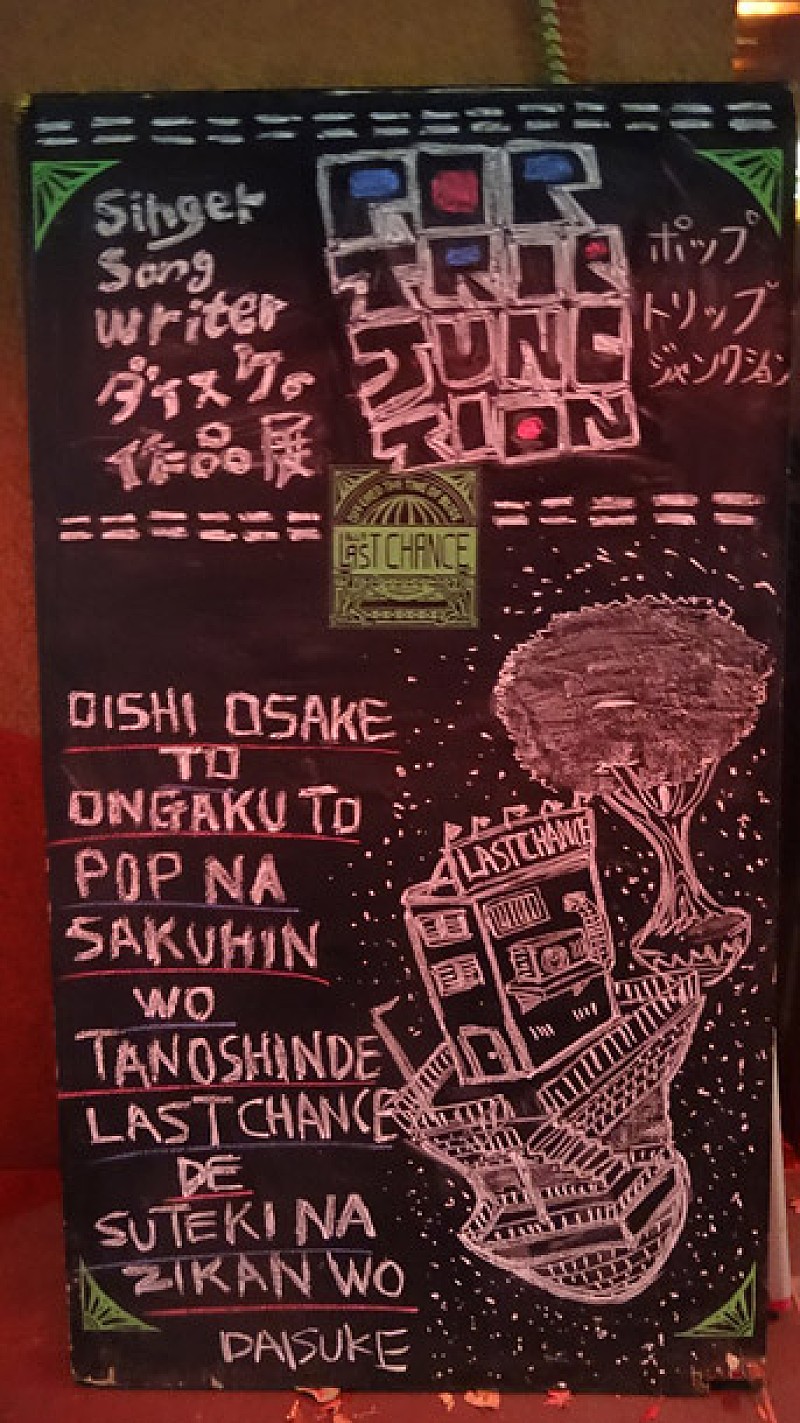 Singer
Song
writer
ダイスケの
作品展
POP
TRIP
JUNC
TION
ポップ
トリップ
ジャンクション
LAST CHANCE
OISHI OSAKE
TO
ONGAKU TO
POP NA
SAKUHIN
WO
TANOSHINDE
LAST CHANCE
DE
SUTEKI NA
ZIKAN WO
DAISUKE
LAST CHANCE